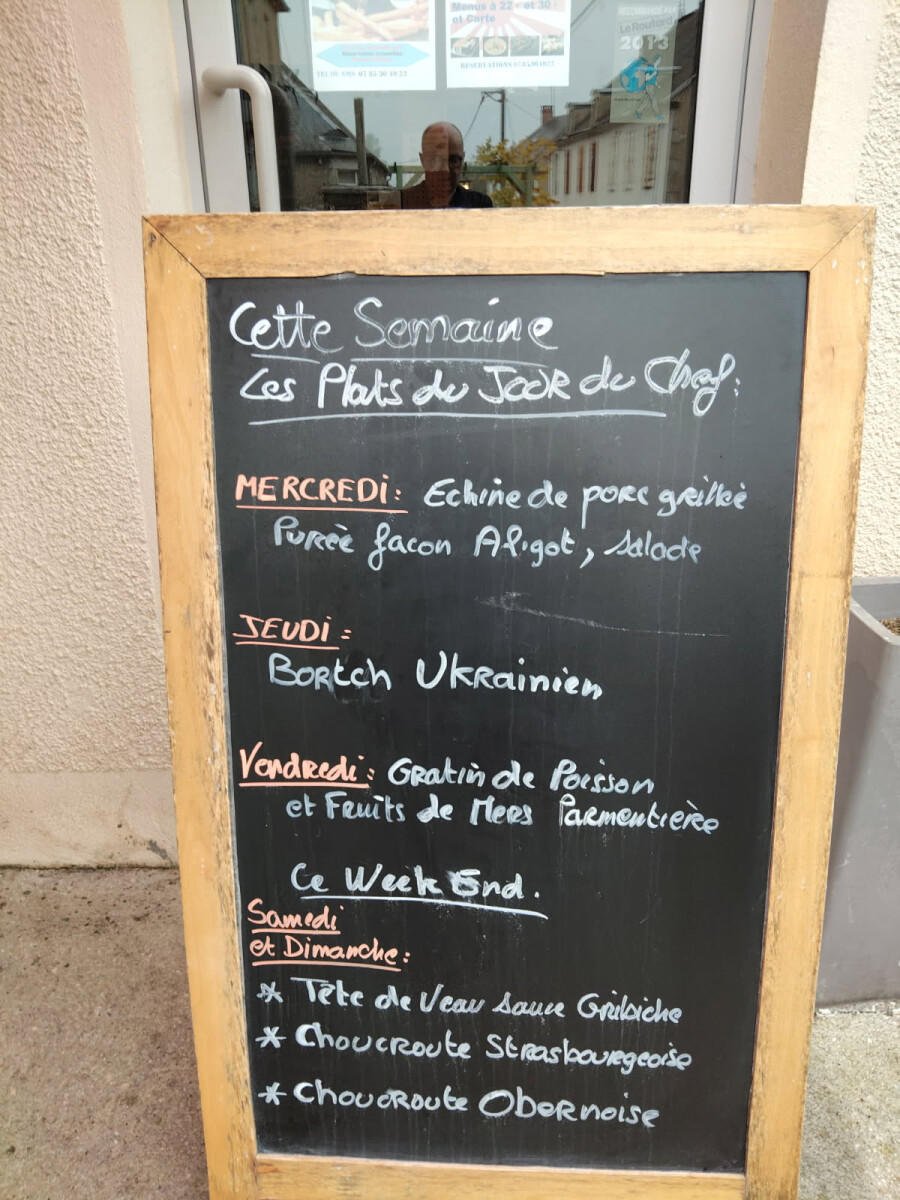 Menus à 22 € et 30
et Carte
RESERVATIONS 07.85.30.40.22
TEL OU SMS 07 85 30 40 22
Le Routard
2013
Cette Semaine
Les Plats du JOUR du Chef:
MERCREDI: Echine de porc grillée
Purée facon Aligot, salade
JEUDI:
Bortch Ukrainien
Vendredi: Gratin de Poisson
et Fruits de Mers Parmentière
Ce Week End.
Samedi
et Dimanche:
* Tête de Veau sauce Gribiche
* Choucroute Strasbourgeoise
* Choucroute Obernoise